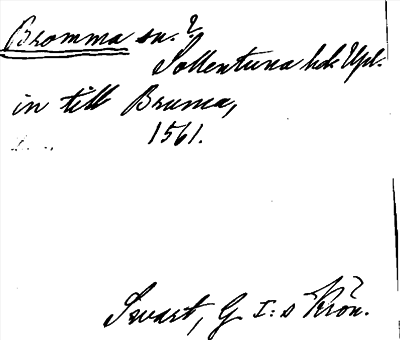 Bromma sn. ?
Sollentuna hd. Upl.
in till Bruma,
1561.
Svart, G I:s Krön.